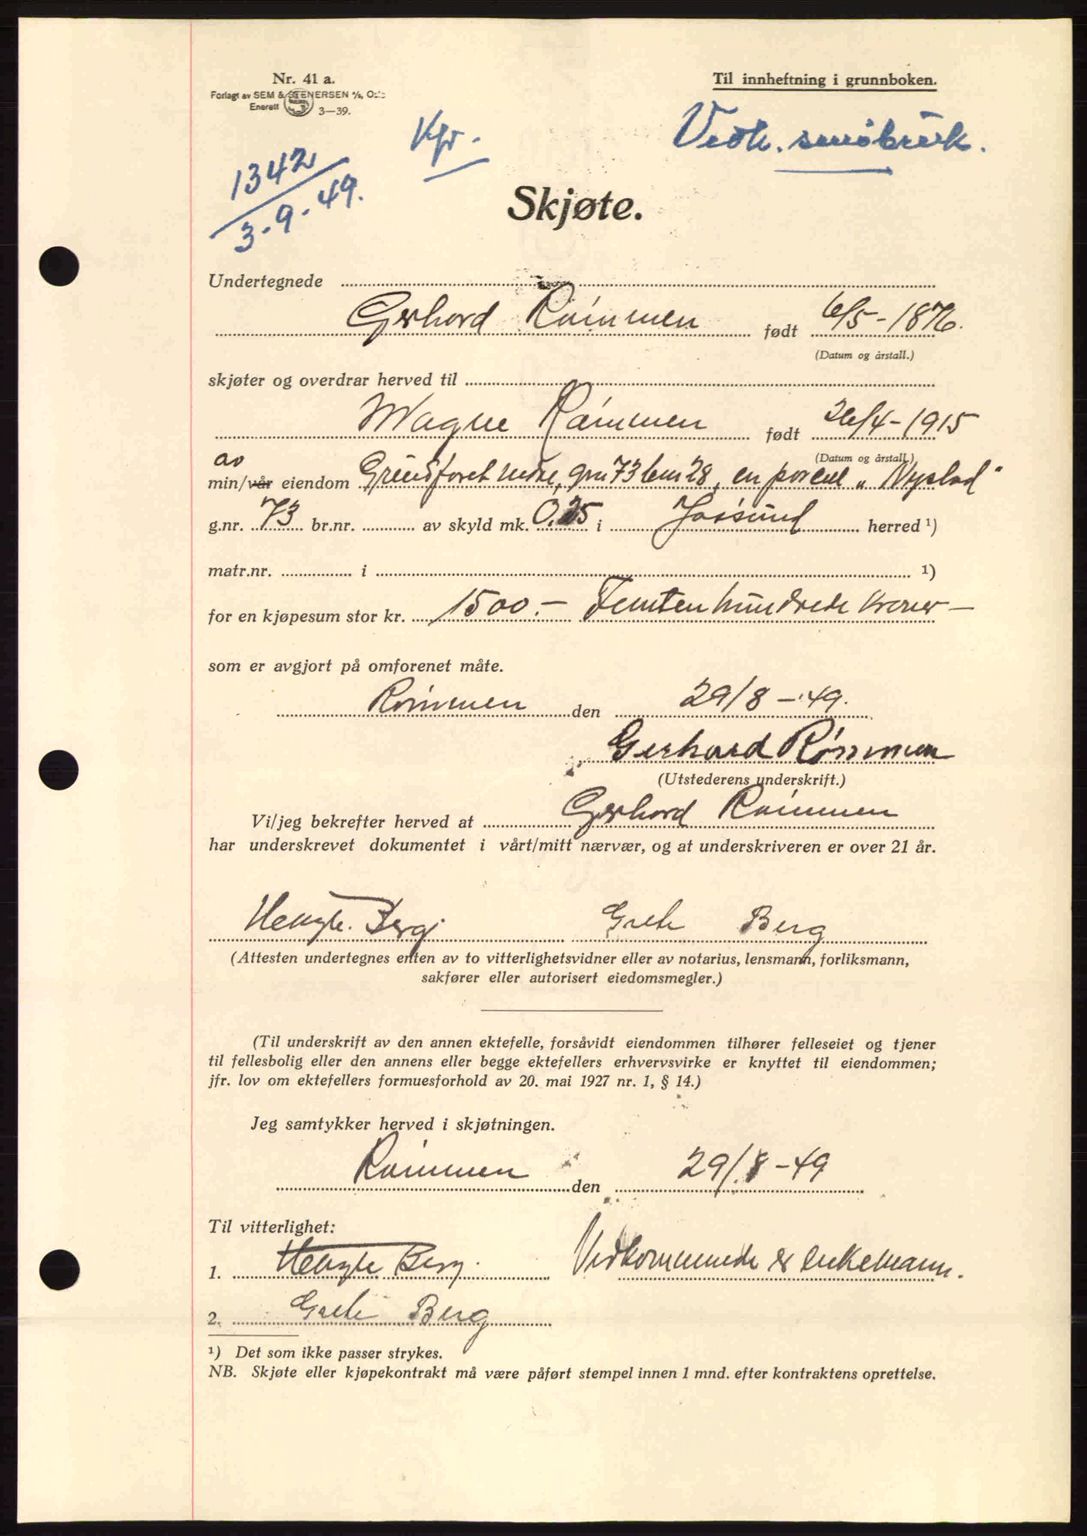 Nr. 41 a.
Forlagt av SEM & STENERSEN A/S, Oslo
Enerett 3—39.
Til innheftning i grunnboken.
Kfr.
Vedk. småbruk.
1342
3-9-49.
Skjøte.
Undertegnede
Gerhard Rømmen født 6/5-1876.
(Datum og årstall.)
skjøter og overdrar herved til
Magne Rømmen født 26/4-1915
(Datum og årstall.)
av
min/vår eiendom nedre, gnr 73 bnr 28, en parsel „Nystad"
g.nr. 73 br.nr. av skyld mk. 0.25 i Jøssund herred ¹)
matr.nr. i ¹)
for en kjøpesum stor kr. 1500.- Femtenhundrede kroner —
som er avgjort på omforenet måte.
Rømmen den 29/8-49.
Gerhard Rømmen
(Utstederens underskrift.)
Vi/jeg bekrefter herved at Gerhard Rømmen
har underskrevet dokumentet i vårt/mitt nærvær, og at underskriveren er over 21 år.
Berg Grete Berg
(Attesten undertegnes enten av to vitterlighetsvidner eller av notarius, lensmann, forliksmann,
sakfører eller autorisert eiedomsmegler.)
(Til underskrift av den annen ektefelle, forsåvidt eiendommen tilhører felleseiet og tjener
til fellesbolig eller den annens eller begge ektefellers erhvervsvirke er knyttet til eiendommen;
jfr. lov om ektefellers formuesforhold av 20. mai 1927 nr. 1, § 14.)
Jeg samtykker herved i skjøtningen.
Rømmen den 29/8-49
Til vitterlighet:
1. Berg. Vedkommende er enkemann.
2. Grete Berg
¹) Det som ikke passer strykes.
NB. Skjøte eller kjøpekontrakt må være påført stempel innen 1 mnd. efter kontraktens oprettelse.